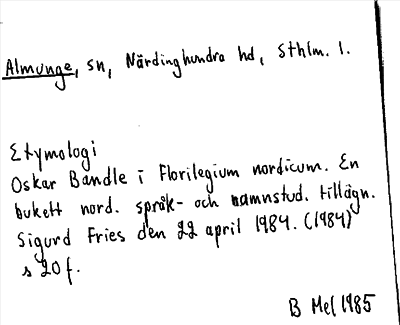 Almunge, sn, Närdinghundra hd, Sthlm. l.
Etymologi
Oskar Bandle i Florilegium nordicum. En
bukett nord. språk- och namnstud. tillägn.
Sigurd Fries den 22 april 1984. (1984)
s 20 f.
B Mel 1985